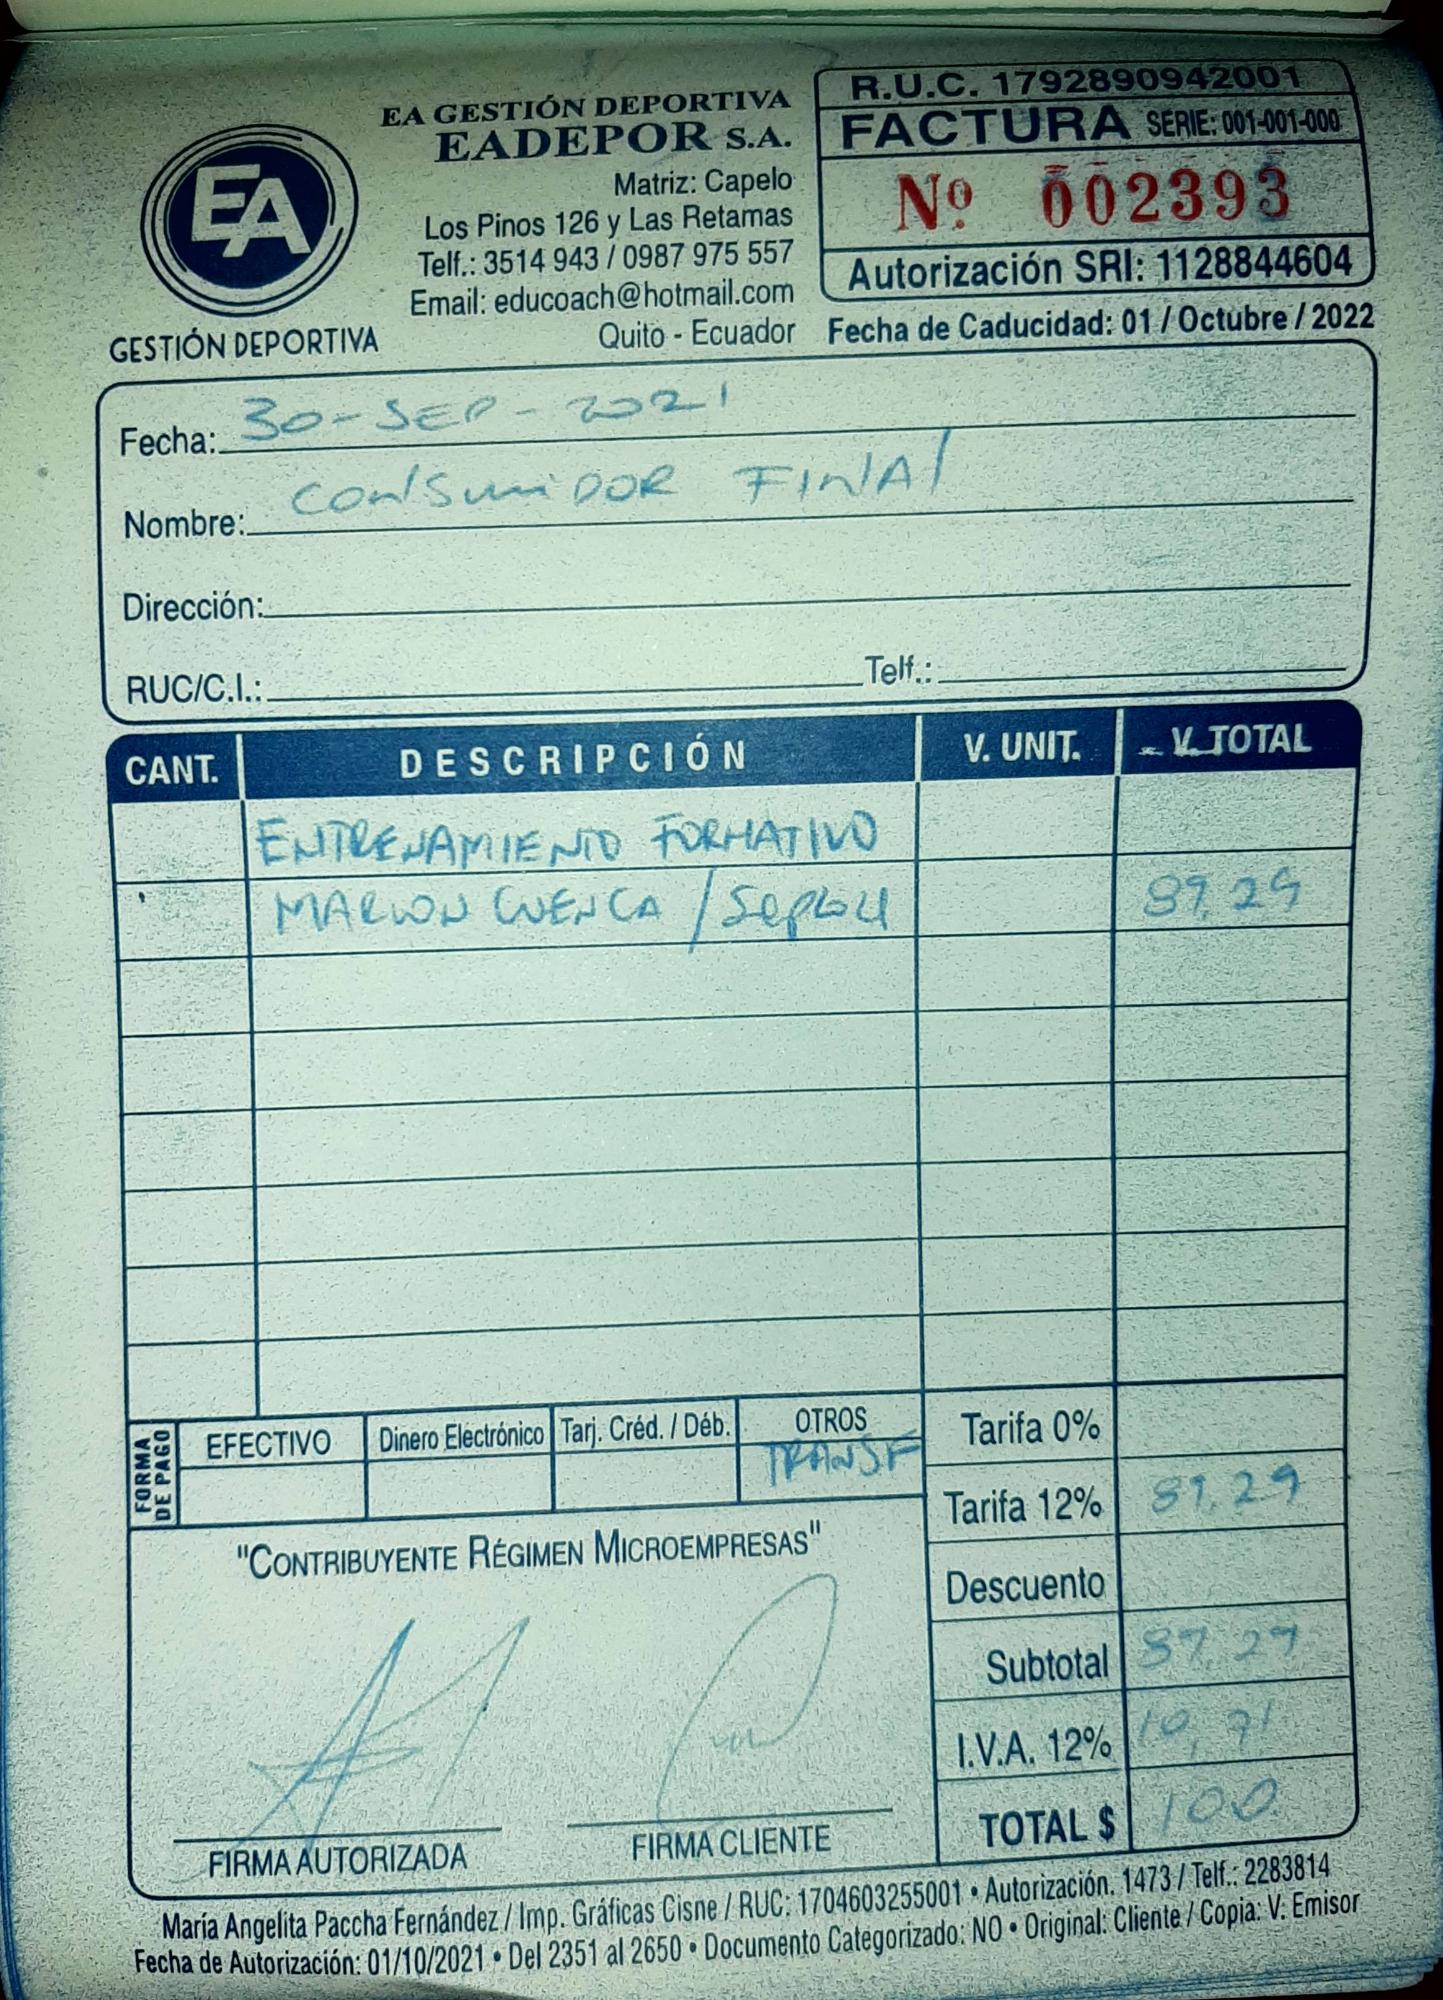 EA GESTIÓN DEPORTIVA
EADEPOR S.A.
Matriz: Capelo
Los Pinos 126 y Las Retamas
Telf.: 3514 943 / 0987 975 557
Email: educoach@hotmail.com
Quito - Ecuador
EA
GESTIÓN DEPORTIVA
R.U.C. 1792890942001
FACTURA SERIE: 001-001-000
Nº 002393
Autorización SRI: 1128844604
Fecha de Caducidad: 01 / Octubre / 2022
Fecha: 30-SEP-2021
Nombre: CONSUMIDOR FINAL
Dirección:
RUC/C.I.: Telf.:
CANT. DESCRIPCIÓN V. UNIT. V. TOTAL
ENTRENAMIENTO FORMATIVO
MARLON CUENCA / 89,29
FORMA DE PAGO EFECTIVO Dinero Electrónico Tarj. Créd. / Déb. OTROS
TRANSF
Tarifa 0%
Tarifa 12% 89,29
Descuento
Subtotal 89,29
I.V.A. 12% 10,71
TOTAL $ 100
"CONTRIBUYENTE RÉGIMEN MICROEMPRESAS"
FIRMA AUTORIZADA FIRMA CLIENTE
María Angelita Paccha Fernández / Imp. Gráficas Cisne / RUC: 1704603255001 • Autorización. 1473 / Telf.: 2283814
Fecha de Autorización: 01/10/2021 • Del 2351 al 2650 • Documento Categorizado: NO • Original: Cliente / Copia: V. Emisor